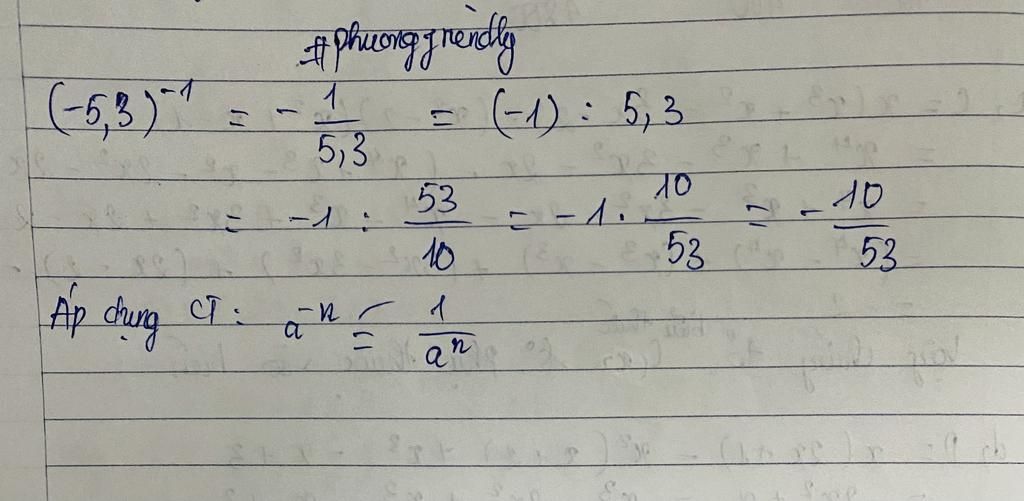 #phuongfriendly
(-5,3)^-1 = - 1/5,3 = (-1) : 5,3
= -1 : 53/10 = -1 . 10/53 = - 10/53
Áp dụng CT: a^-n = 1/a^n